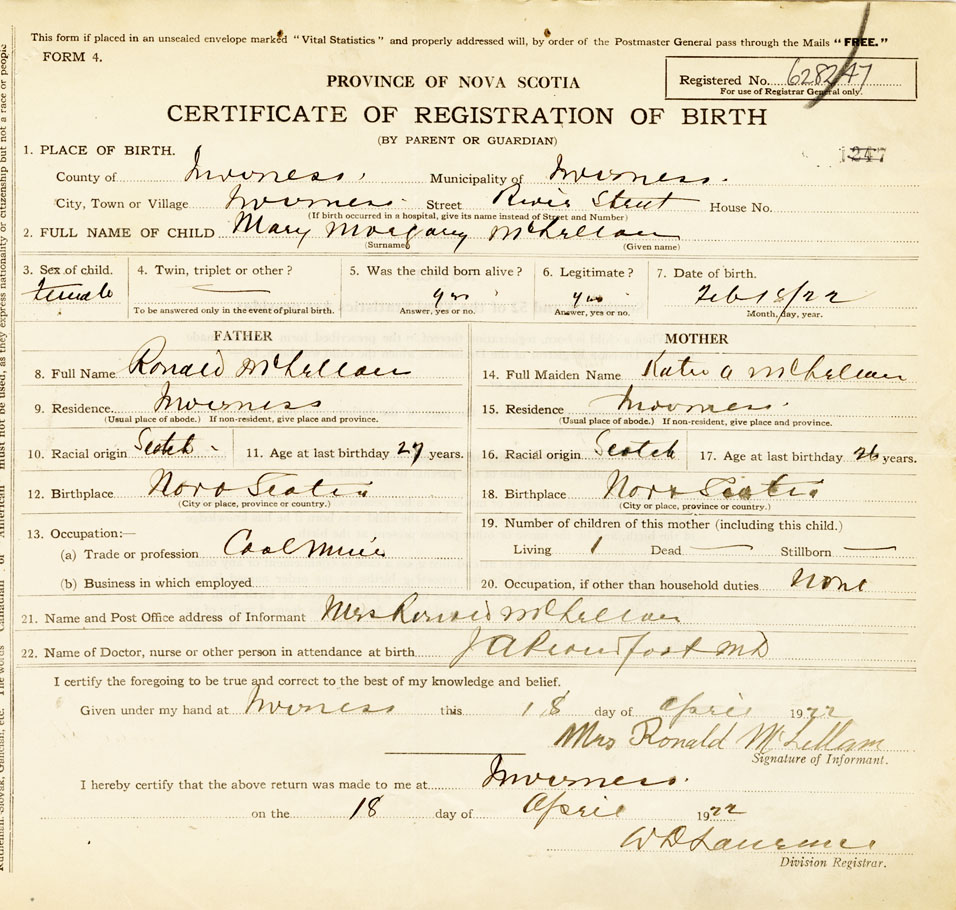 This form if placed in an unsealed envelope marked "Vital Statistics" and properly addressed will, by order of the Postmaster General pass through the Mails "FREE."
FORM 4.
PROVINCE OF NOVA SCOTIA
Registered No. 628247
For use of Registrar General only.
CERTIFICATE OF REGISTRATION OF BIRTH
(BY PARENT OR GUARDIAN)
1247
1. PLACE OF BIRTH.
County of Inverness. Municipality of Inverness.
City, Town or Village Inverness. Street River Street House No.
(If birth occurred in a hospital, give its name instead of Street and Number)
2. FULL NAME OF CHILD Mary McLellan
(Surname) (Given name)
3. Sex of child. 4. Twin, triplet or other? 5. Was the child born alive? 6. Legitimate? 7. Date of birth.
female — yes yes Feb 18/22
To be answered only in the event of plural birth. Answer, yes or no. Answer, yes or no. Month, day, year.
FATHER MOTHER
8. Full Name Ronald McLellan 14. Full Maiden Name Katie A McLellan
9. Residence Inverness 15. Residence Inverness.
(Usual place of abode.) If non-resident, give place and province. (Usual place of abode.) If non-resident, give place and province.
10. Racial origin Scotch - 11. Age at last birthday 27 years. 16. Racial origin Scotch 17. Age at last birthday 26 years.
12. Birthplace Nova Scotia 18. Birthplace Nova Scotia
(City or place, province or country.) (City or place, province or country.)
13. Occupation:— 19. Number of children of this mother (including this child.)
(a) Trade or profession Coal Miner Living 1 Dead — Stillborn —
(b) Business in which employed 20. Occupation, if other than household duties None
21. Name and Post Office address of Informant Mrs Ronald McLellan
22. Name of Doctor, nurse or other person in attendance at birth J A Proudfoot MD
I certify the foregoing to be true and correct to the best of my knowledge and belief.
Given under my hand at Inverness this 18 day of April 1922
Mrs Ronald McLellan
Signature of Informant.
I hereby certify that the above return was made to me at Inverness.
on the 18 day of April 1922
W D Lawrence
Division Registrar.
must not be used, as they express nationality or citizenship but not a race or people